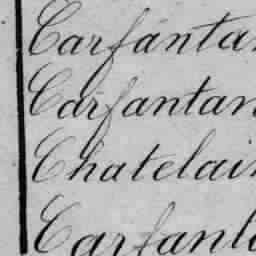 Carfanta
Carfantan
Chatelai
Carfant